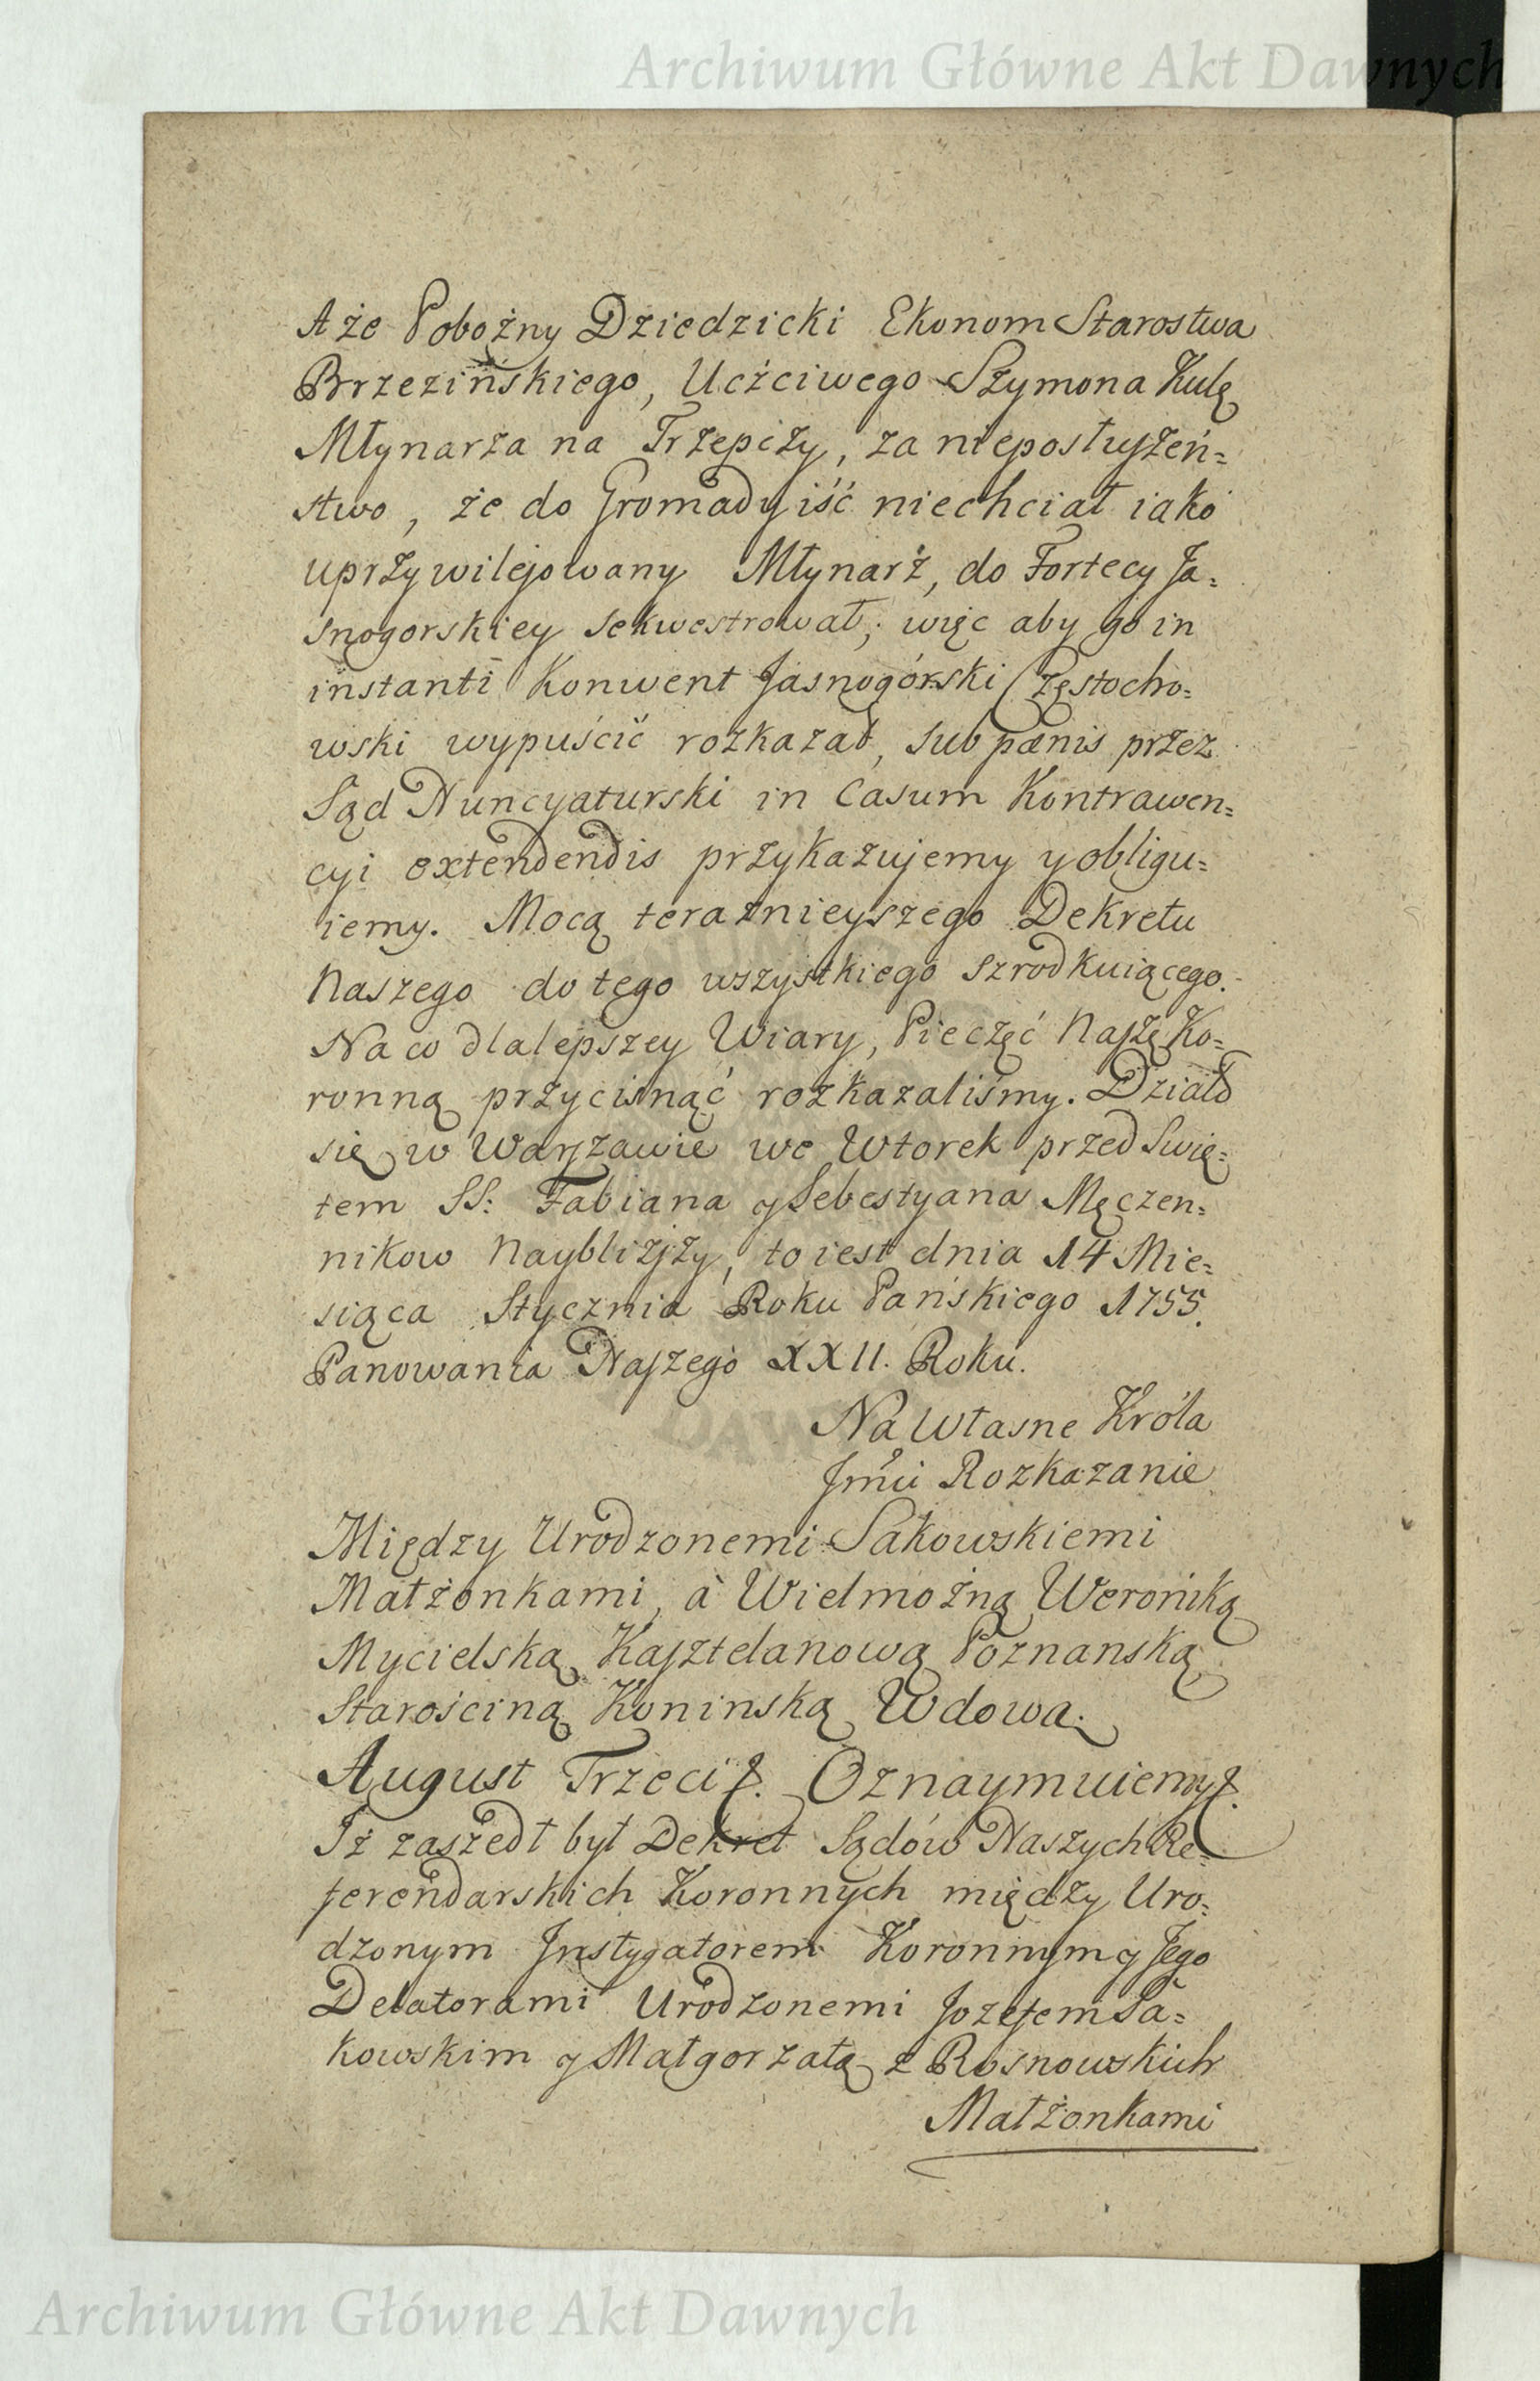 Archiwum Główne Akt Dawnych
A że Pobożny Dziedzicki Ekonom Starostwa
Brzezińskiego, Uczciwego Szymona Kulę
Młynarza na Trzepizy, za nieposłuszeń=
stwo, że do Gromady iść niechciał iako
uprzywilejowany Młynarz, do Fortecy Ja=
snogorskiey sekwestrował; więc aby go in
instanti Konwent Jasnogórski Częstocho=
wski wypuścić rozkazał, sub pænis przez
Sąd Nuncyaturski in Casum Kontrawen=
cyi extendendis przykazujemy y obligu=
iemy. Mocą teraznieyszego Dekretu
Naszego do tego wszystkiego szrodkuiącego.
Na co dla lepszey Wiary, Pieczęć Naszę Ko=
ronną przycisnąć rozkazaliśmy. Działo
się w Warszawie we Wtorek przed Swię=
tem SS: Fabiana y Sebestyana Męczen=
nikow Nayblizszy, to iest dnia 14 Mie=
siąca Stycznia Roku Pańskiego 1755.
Panowania Naszego XXII. Roku.
Na Własne Króla
Jmci Rozkazanie
Między Urodzonemi Sakowskiemi
Małżonkami, à Wielmożną Weroniką
Mycielską Kasztelanową Poznanską
Starościną Koninską Wdową.
August Trzeci &. Oznaymuiemy &.
Iż zaszedł był Dekret Sądów Naszych Re=
ferendarskich Koronnych między Uro=
dzonym Instygatorem Koronnym y Jego
Delatorami Urodzonemi Jozefem Sa=
kowskim y Małgorzatą z Rosnowskich
Małżonkami
Archiwum Główne Akt Dawnych